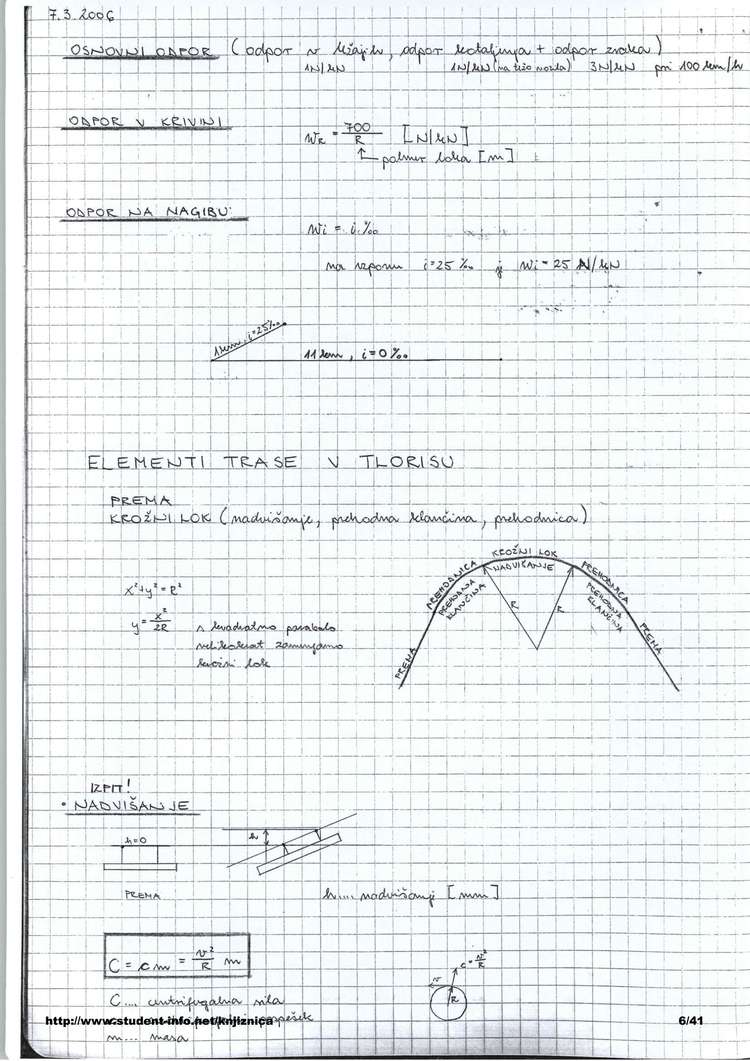 7.3.2006
OSNOVNI ODPOR (odpor v ležajih, odpor kotaljenja + odpor zraka)
1N/kN 1N/kN (na težo vozila) 3N/kN pri 100 km/h
ODPOR V KRIVINI
wR = 700/R [N/kN]
polmer loka [m]
ODPOR NA NAGIBU:
wi = i ‰
na vzponu i=25 ‰ je wi = 25 N/kN
1km, i=25‰
11 km, i=0 ‰
ELEMENTI TRASE V TLORISU
PREMA
KROŽNI LOK (nadvišanje, prehodna klančina, prehodnica)
KROŽNI LOK
NADVIŠANJE
PREHODNICA
PREHODNA KLANČINA
R
R
PREHODNICA
PREHODNA KLANČINA
PREMA
PREMA
x²+y² = R²
y = x²/2R
s kvadratno parabolo
velikokrat zamenjamo
krožni lok
IZPIT!
• NADVIŠANJE
h=0
h
PREMA
h.... nadvišanje [mm]
C = c m = v²/R m
v
c = v²/R
R
C.... centrifugalna sila
http://www.student-info.net/knjiznica pospešek
6/41
m.... masa